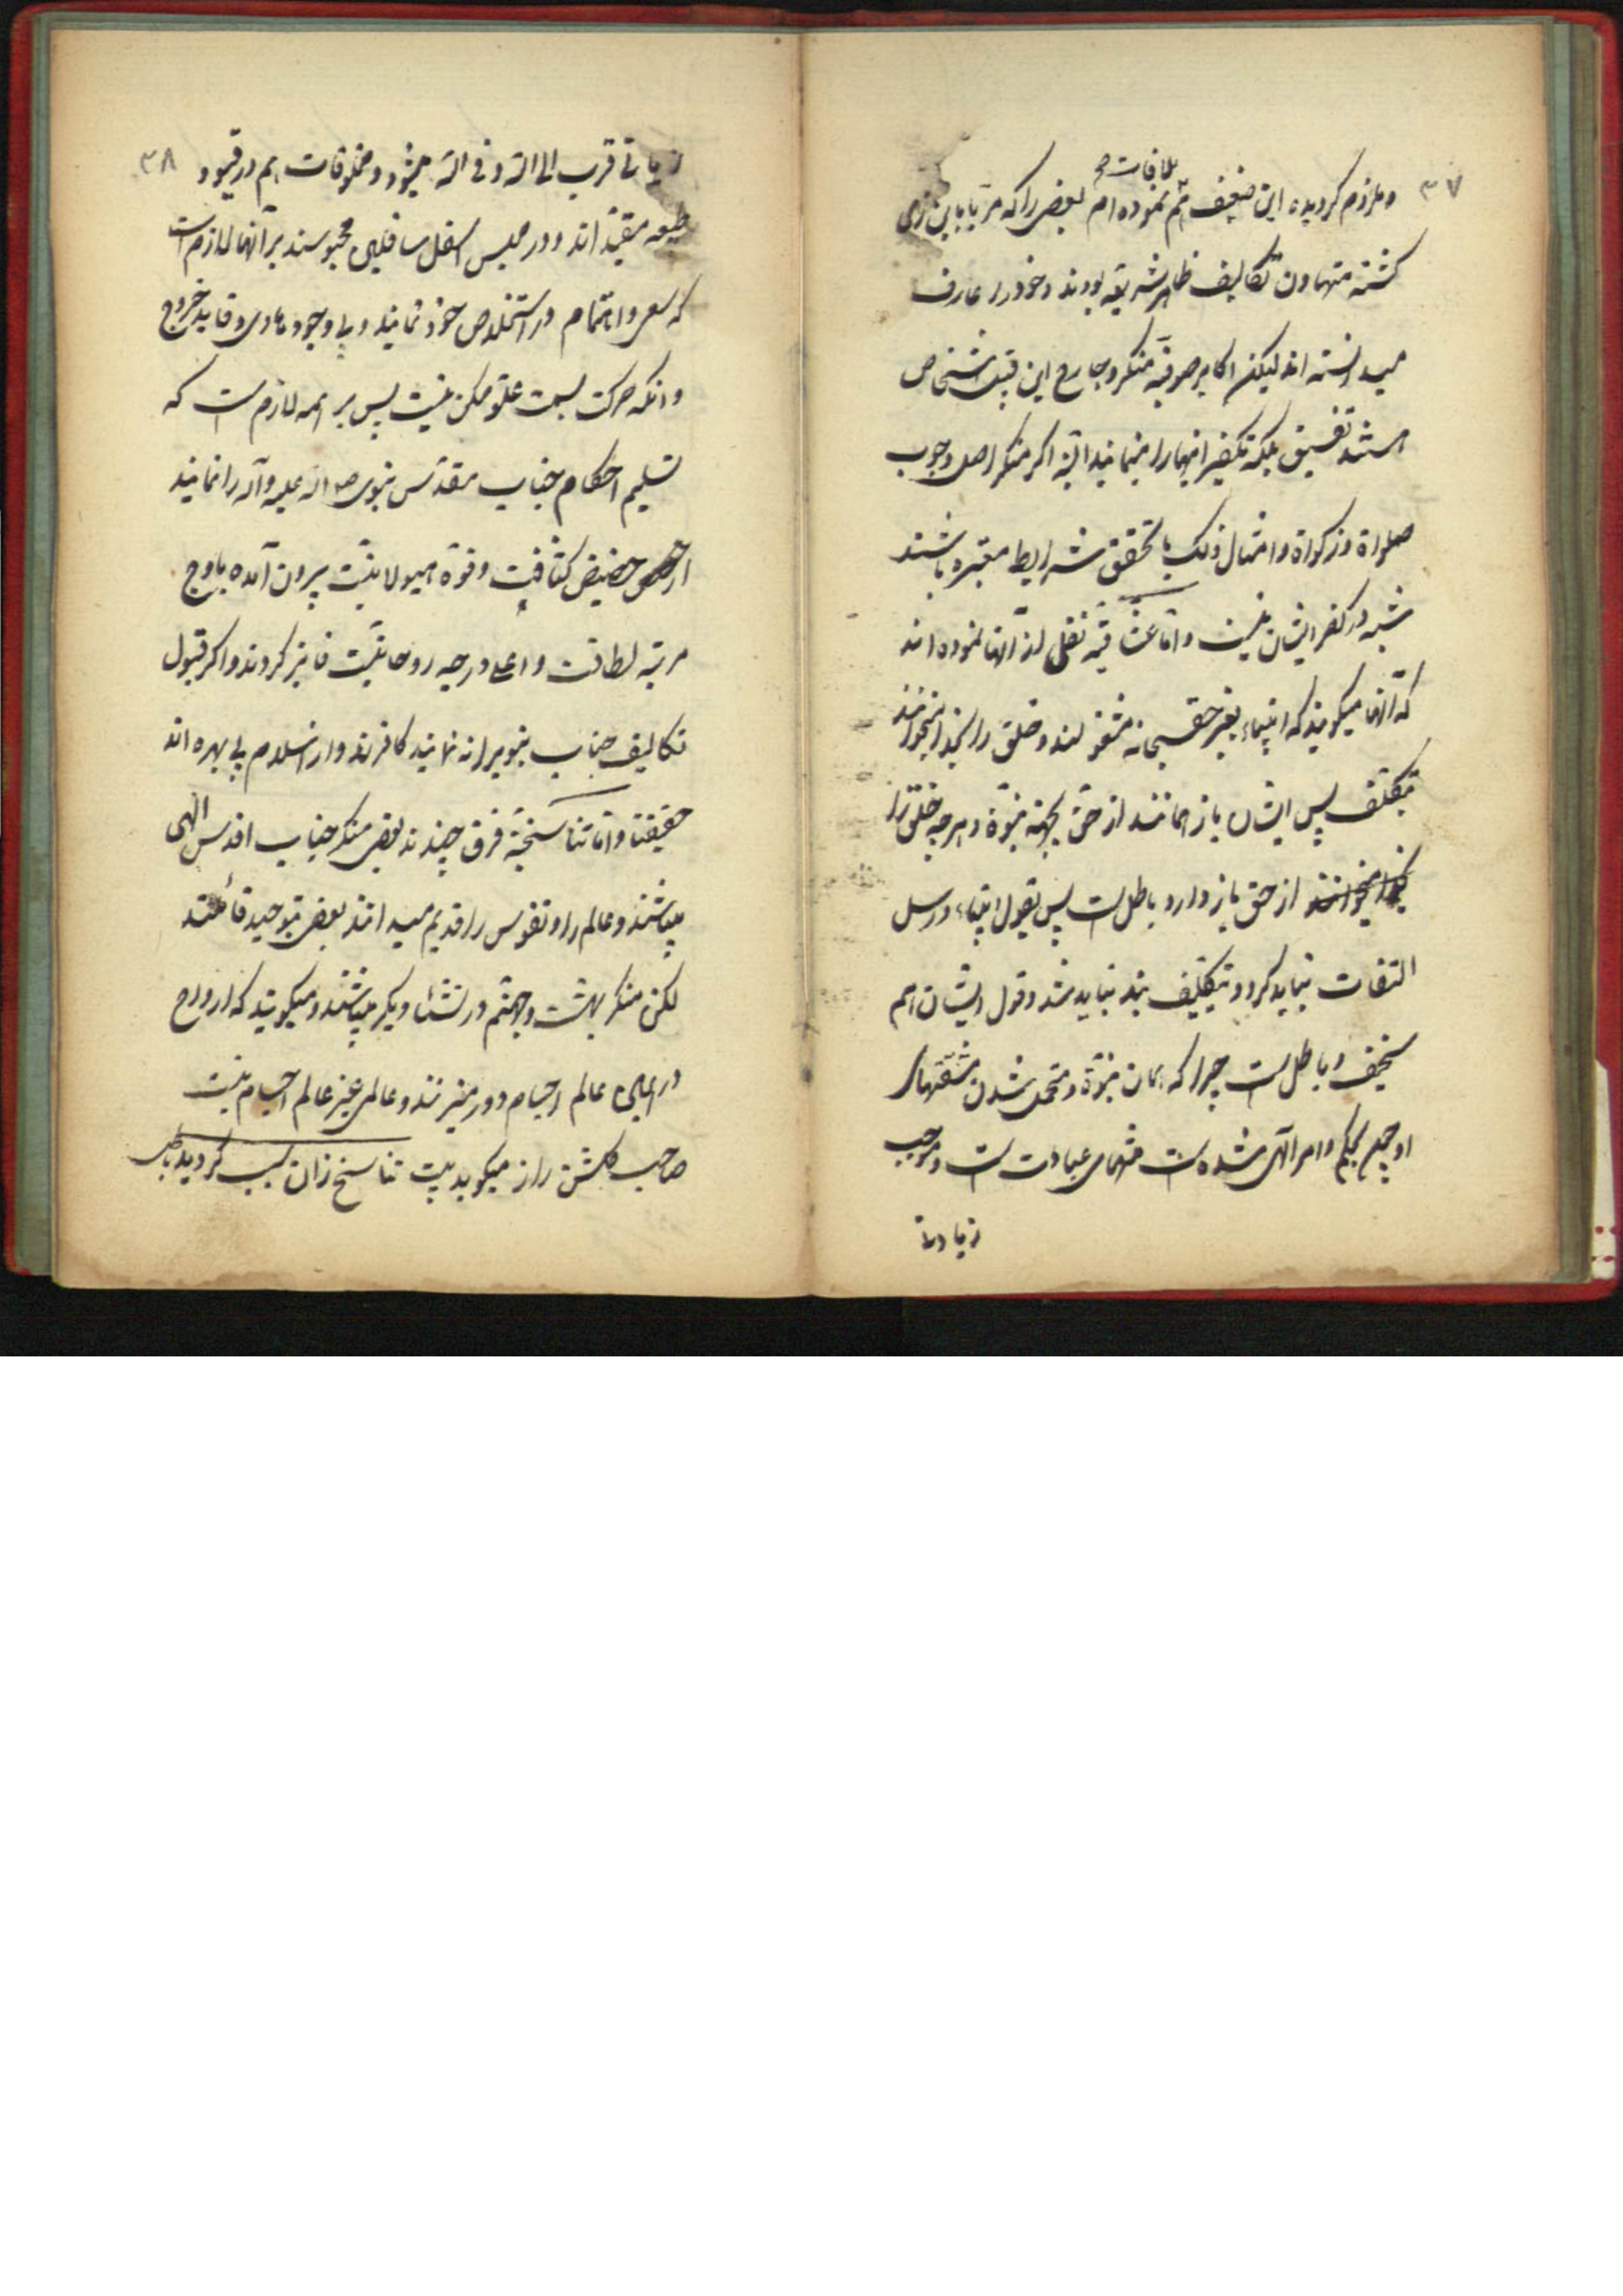 ۳۷
وملزم کردیده این ضعیف هم بملاقات نموده ام بعضی را که مربا باین زی
کشته متهاون تکالیف ظاهر شریعه بودند وخودرا عارف
میدانسته اند لیکن اکابر صوفیه منکر وجارح این قبیل اشخاص
هستند تفسیق بلکه تکفیر اینها را مینمایند البته اکر منکر اصل وجوب
صلواة وزکواة وامثال ذلک با تحقق شرایط معتبره باشند
شبه در کفر ایشان نیست واما عشاقیه نقلی از آنها نموده اند
که آنها میکویند که انبیاء بغیر حق سبحانه مشغولند وخلق را بخدا میخوانند
بتکلف پس ایشان باز ماندند از حق بجهة نبوة وهر چه خلق را
از حق باز دارد باطل است پس بقول انبیاء ورسل
التفات نباید کرد وبتکلیف بند نباید شد وقول ایشان هم
سخیف وباطل است چرا که همان نبوة ومتحمل شدن مشقتهای
او چون بحکم وامر الهی شده است منتهای عبادت است وموجب
زیادتی
۳۸
زیادتی قرب الی الله وفی الله میشود ومخلوقات هم در قیود
طبیعه مقید اند ودر حبس اسفل سافلین محبوسند بر آنها لازم است
که سعی واهتمام در استخلاص خود نمایند وبی وجود هادی وقاید خروج
وانکه حرکت بسمت علو ممکن نیست پس بر همه لازم است که
تسلیم احکام جناب مقدس نبوی صلی الله علیه وآله را نمایند
از حضیض کثافت وقوة هیولانیت بیرون آمده باوج
مرتبه لطافت واعلی درجه روحانیت فایز کردند واکر قبول
تکالیف جناب نبویرا نه نمایند کافرند واز اسلام بی بهره اند
حقیقتا واما تناسخیه فرق چندند بعضی منکر جناب اقدس الهی
میباشند وعالم را ونفوس را قدیم میدانند بعضی بتوحید قائلند
لکن منکر بهشت وجهنم در نشئاء دیکر میباشند ومیکویند که ارواح
در همین عالم اجسام دور میزنند وعالمی غیر عالم اجسام نیست
صاحب کلشن راز میکوید بیت تناسخ زان سبب کردید باطل